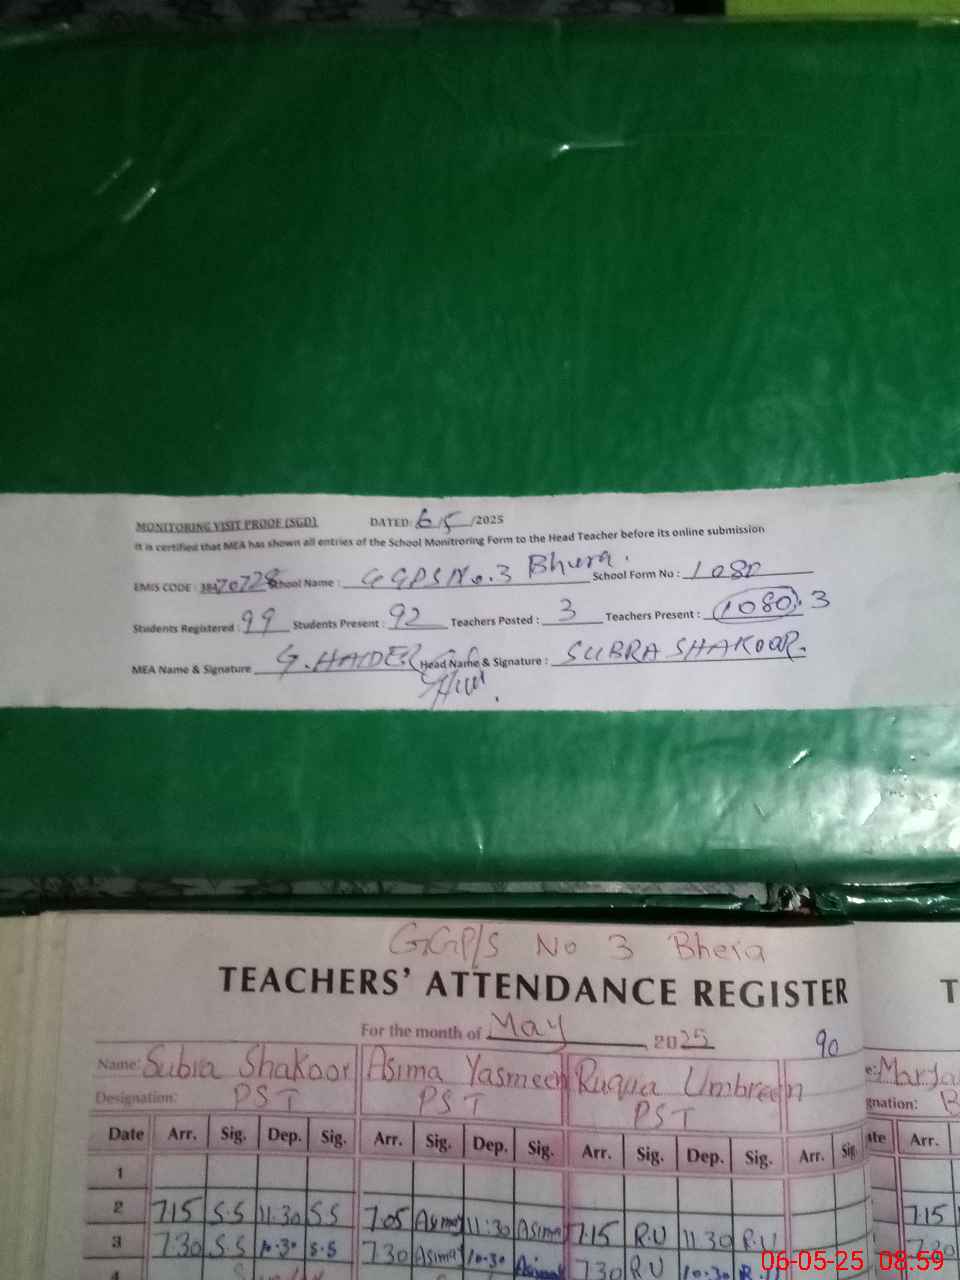 MONITORING VISIT PROOF (SGD) DATED: 6/5/2025
It is certified that MEA has shown all entries of the School Monitroring Form to the Head Teacher before its online submission
EMIS CODE : 38470728 School Name : GGPS No.3 Bhera. School Form No : 1080
Students Registered : 99 Students Present : 92 Teachers Posted : 3 Teachers Present : 1080. 3
MEA Name & Signature G.HAIDER Head Name & Signature : SUBRA SHAKOOR.
GGP/S No 3 Bhera
TEACHERS' ATTENDANCE REGISTER
T
For the month of May, 2025
90
Name: Subia Shakoor Asima Yasmeen Ruqua Umbreen e: Marya
Designation: PST PST PST gnation: B
Date Arr. Sig. Dep. Sig. Arr. Sig. Dep. Sig. Arr. Sig. Dep. Sig. Arr. Sig. ate Arr.
1
2 7.15 S.S 11.30 S.S 7.05 Asima 11:30 Asima 7.15 R.U 11.30 R.U 7.15
3 7.30 S.S 10.30 S.S 7.30 Asima 10.30 Asima 7.30 R.U 10.30 R.U 7.30
4
06-05-25 08:59